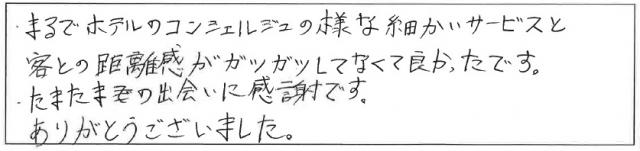 ・まるでホテルのコンシェルジュの様な細かいサービスと
客との距離感がガツガツしてなくて良かったです。
・たまたまの出会いに感謝です。
ありがとうございました。